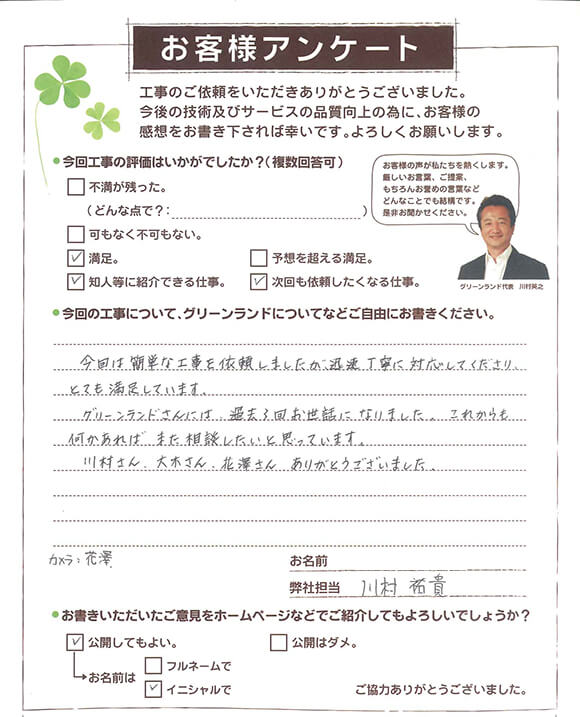 お客様アンケート
工事のご依頼をいただきありがとうございました。
今後の技術及びサービスの品質向上の為に、お客様の
感想をお書き下されば幸いです。よろしくお願いします。
●今回工事の評価はいかがでしたか?(複数回答可)
不満が残った。
(どんな点で?: )
可もなく不可もない。
✓ 満足。
予想を超える満足。
✓ 知人等に紹介できる仕事。
✓ 次回も依頼したくなる仕事。
お客様の声が私たちを熱くします。
厳しいお言葉、ご提案、
もちろんお誉めの言葉など
どんなことでも結構です。
是非お聞かせください。
グリーンランド代表 川村英之
●今回の工事について、グリーンランドについてなどご自由にお書きください。
今回は簡単な工事を依頼しましたが、迅速丁寧に対応してくださり、
とても満足しています。
グリーンランドさんには、過去3回お世話になりました。これからも
何かあれば また相談したいと思っています。
川村さん、大木さん、花澤さん ありがとうございました。
カメラ:花澤
お名前
弊社担当 川村 祐貴
●お書きいただいたご意見をホームページなどでご紹介してもよろしいでしょうか?
✓ 公開してもよい。
公開はダメ。
お名前は
フルネームで
✓ イニシャルで
ご協力ありがとうございました。